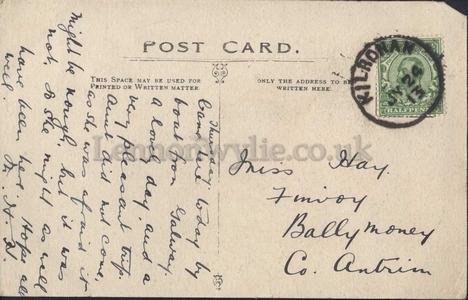 POST CARD.
THIS SPACE MAY BE USED FOR
PRINTED OR WRITTEN MATTER.
ONLY THE ADDRESS TO BE
WRITTEN HERE.
KILRONAN
JY 24
13
HALFPENNY
Thursday
Came here today by
boat from Galway.
a long day, and a
very pleasant trip.
Aunt did not come,
as she was afraid it
might be rough, but it was
not, & she might as well
have been here. Hope all
well.
M. H.
Miss Hay.
Finvoy
Ballymoney
Co. Antrim
Lennonwylie.co.uk